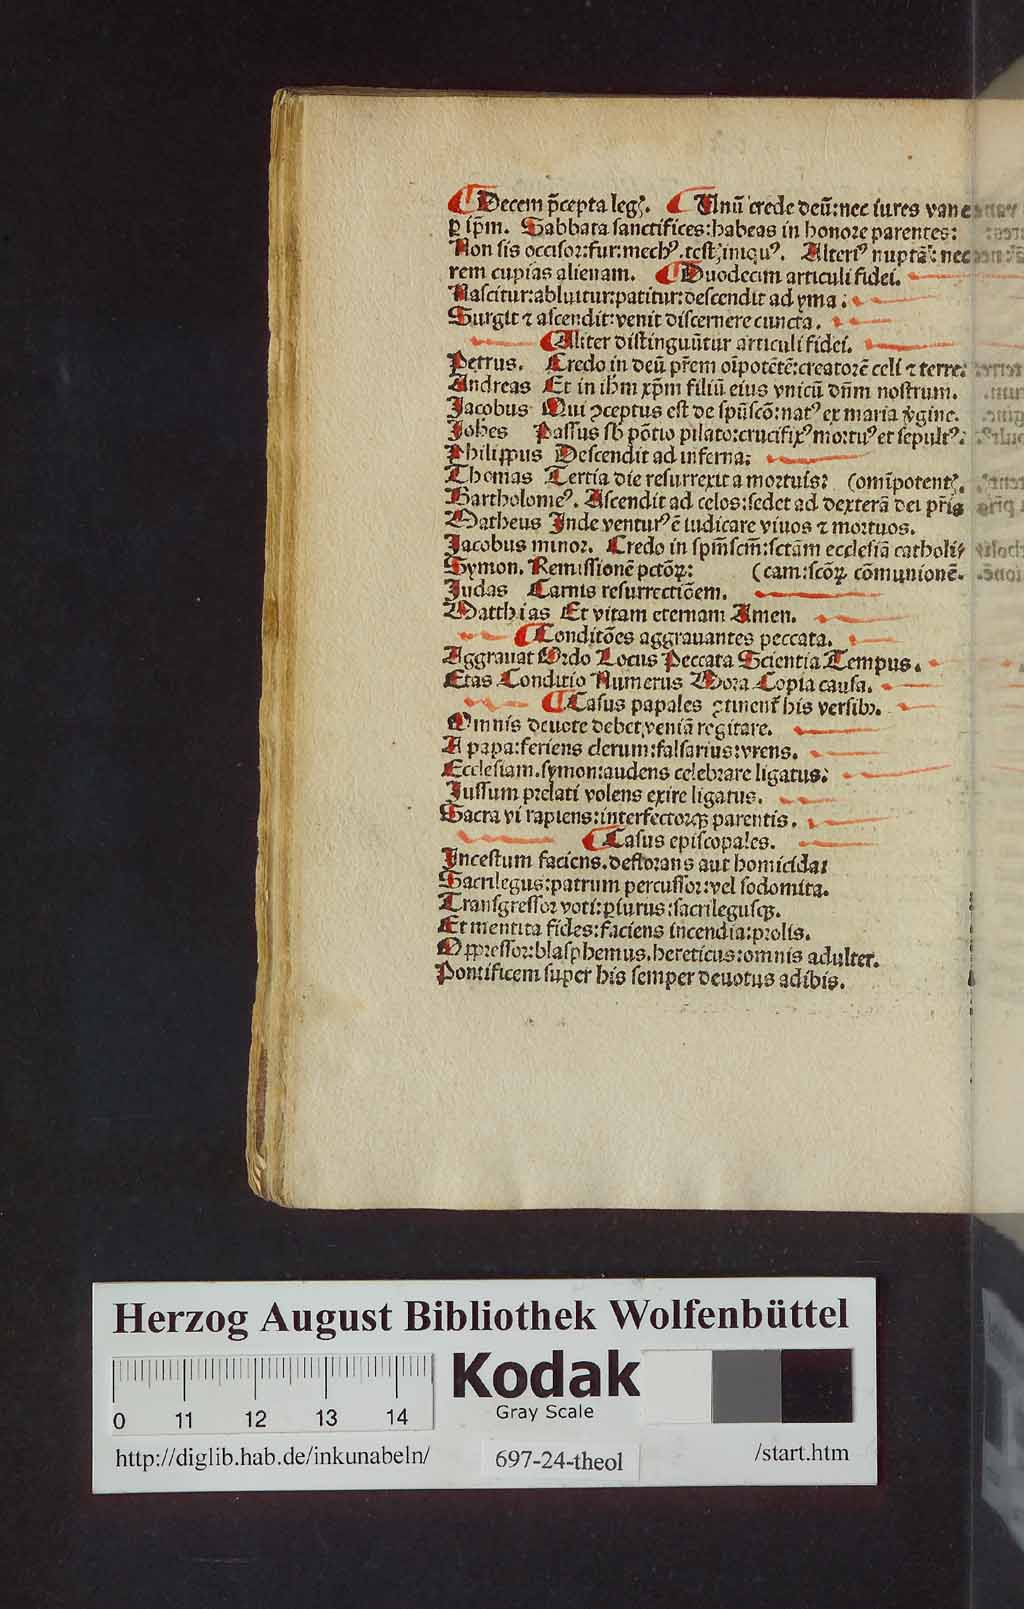 Decem p̄cepta legꝭ. Unū crede deū:nec iures vane
ꝑ ip̄m. Sabbata sanctifices:habeas in honore parentes:
Non sis occisor:fur:mechꝰ.testꝭ iniquꝰ. Alteriꝰ nuptā: nec
rem cupias alienam. Duodecim articuli fidei.
Nascitur:abluitur:patitur:descendit ad yma:
Surgit ⁊ ascendit:venit discernere cuncta.
Aliter distinguūtur articuli fidei.
Petrus. Credo in deū p̄rem oīpotētē:creatorē celi ⁊ terre:
Andreas Et in ihm xp̄m filiū eius vnicū dn̄m nostrum.
Jacobus Qui ꝯceptus est de spūscō:natꝰ ex maria v̄gine.
Johes Passus sb pōtio pilato:crucifixꝰ mortuꝰ et sepultꝰ:
Philippus Descendit ad inferna:
Thomas Tertia die resurrexit a mortuis: (omīpotentꝭ.
Bartholomeꝰ. Ascendit ad celos:sedet ad dexterā dei pr̄is
Matheus Inde venturꝰ ē iudicare viuos ⁊ mortuos.
Jacobus minor. Credo in spm̄scm̄:sctām ecclesiā catholi⸗
Symon. Remissionē pctōꝝ: (cam:scōꝝ cōmunionē.
Judas Carnis resurrectiōem.
Matthias Et vitam eternam Amen.
Conditōes aggrauantes peccata.
Aggrauat Ordo Locus Peccata Scientia Tempus.
Etas Conditio Numerus Mora Copia causa.
Casus papales ꝯtinent̄ his versibꝫ.
Omnis deuote debet veniā regitare.
A papa:feriens clerum:falsarius:vrens.
Ecclesiam.symon:audens celebrare ligatus:
Jussum prelati volens exire ligatus.
Sacra vi rapiens:interfectorqꝫ parentis.
Casus episcopales.
Incestum faciens.deflorans aut homicida:
Sacrilegus:patrum percussor:vel sodomita.
Transgressor voti:ꝑiurus:sacrilegusqꝫ.
Et mentita fides:faciens incendia:prolis.
Oppressor:blasphemus.hereticus:omnis adulter.
Pontificem super his semper deuotus adibis.
Herzog August Bibliothek Wolfenbüttel
Kodak
Gray Scale
0 11 12 13 14
http://diglib.hab.de/inkunabeln/ 697-24-theol /start.htm